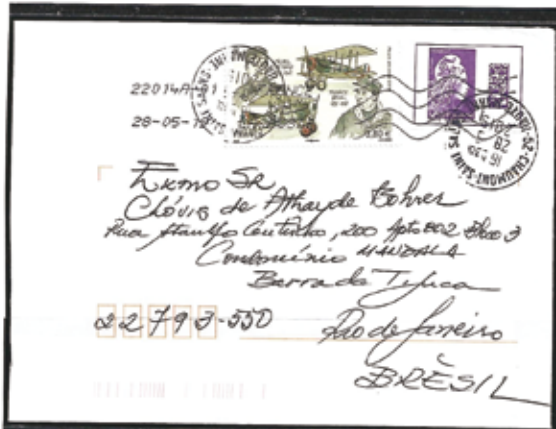 22014A
28-05-1
CHAUMONT
Exmo Sr
Clóvis de Athayde Bohrer
Rua Coutinho, 200 Apto 802 Bloco 3
Condomínio MANDALA
Barra da Tijuca
22793-550
Rio de Janeiro
BRÈSIL